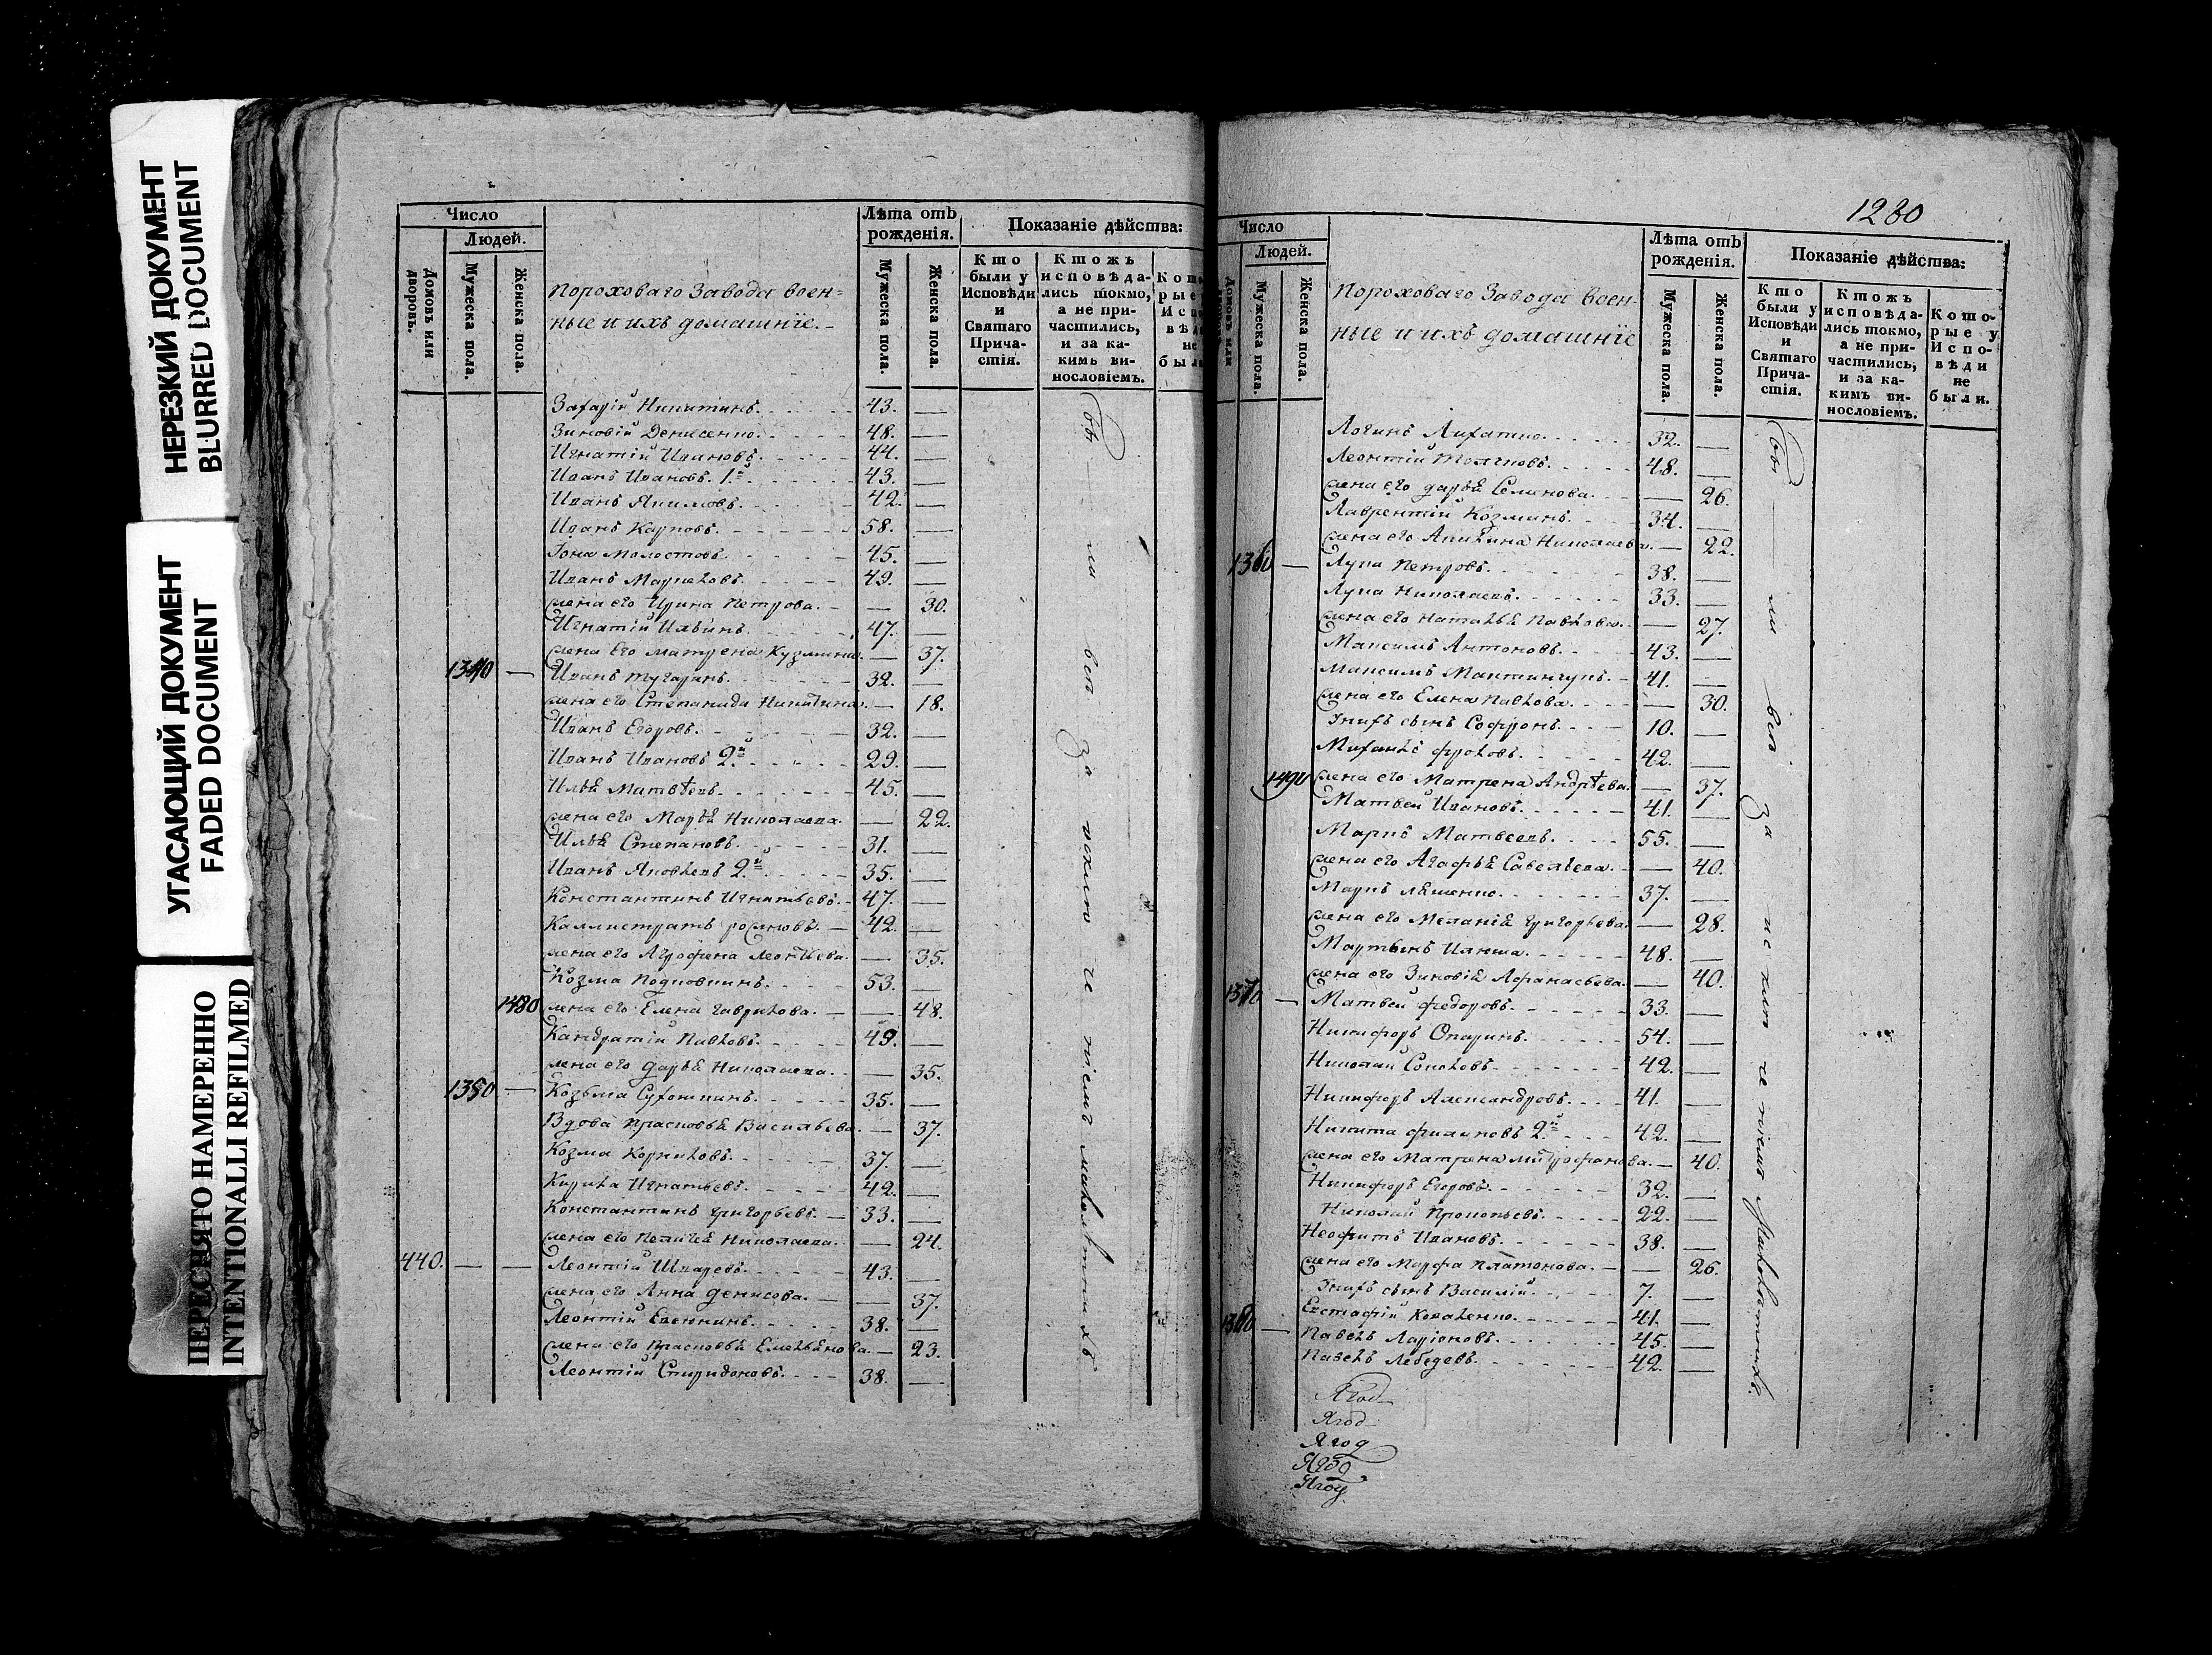 НЕРЕЗКИЙ ДОКУМЕНТ
BLURRED DOCUMENT
УГАСАЮЩИЙ ДОКУМЕНТ
FADED DOCUMENT
ПЕРЕСНЯТО НАМЕРЕННО
INTENTIONALLI REFILMED
Число
Людей.
Домовъ или дворовъ.
Мужеска пола.
Женска пола.
Пороховаго Завода воен-
ные и ихъ домашнїе.
Лѣта отъ рожденія.
Мужеска пола.
Женска пола.
Показаніе дѣйства:
Кто были у Исповѣди и Святаго Прича-стія.
Ктожъ исповѣда-лись токмо, а не при-частились, и за ка-кимъ ви-нословіемъ.
Захарій Никитинъ. 43.
Зиновій Денисенко. 48.
Игнатій Ивановъ. 44.
Иванъ Ивановъ. 1й 43.
Иванъ Якимовъ. 42.
Иванъ Карповъ. 58.
Іона Молостовъ. 45.
Иванъ 49.
жена его Ирина Петрова. 30.
Игнатій Ильинъ. 47.
жена его Матрена Кузмина. 37.
1340 Иванъ Тугаринъ. 32.
жена его Степанида Никитина. 18.
Иванъ Егоровъ. 32.
Иванъ Ивановъ 2й 29.
Илья Матвѣевъ. 45.
жена его Марья Николаева. 22.
Илья Степановъ. 31.
Иванъ Яковлевъ 2й 35.
Константинъ Игнатьевъ. 47.
Каллистратъ 42.
жена его Агрофена Леонтьева. 35.
Козма Подковкинъ. 53.
1480 жена его Елена Гаврилова. 48.
Кандратій Павловъ. 49.
жена его Дарья Николаева. 35.
1350 Козьма 35.
Вдова Прасковья Васильева. 37.
Козма Корниловъ. 37.
Кирила Игнатьевъ. 42.
Константинъ Григорьевъ. 33.
жена его Пелагея Николаева. 24.
440. Леонтій 43.
жена его Анна Денисова. 37.
Леонтій Евсюкинъ. 38.
жена его Прасковья Емельянова. 23.
Леонтій Спиридоновъ. 38.
1280
Число
Людей.
Мужеска пола.
Женска пола.
Пороховаго Завода воен-
ные и ихъ домашнїе
Лѣта отъ рожденія.
Мужеска пола.
Женска пола.
Показаніе дѣйства:
Кто были у Исповѣди и Святаго Прича-стія.
Ктожъ исповѣда-лись токмо, а не при-частились, и за ка-кимъ ви-нословіемъ.
Кото-рые у Испо-вѣди не были.
Логинъ 32.
Леонтій 48.
жена его Дарья Семинова. 26.
Лаврентій Козминъ. 34.
жена его Акилина Николаева. 22.
1360 Лука Петровъ. 38.
Лука Николаевъ. 33.
жена его Наталья Павлова. 27.
Максимъ Антоновъ. 43.
Максимъ 41.
жена его Елена Павлова. 30.
Ихъ сынъ Софронъ. 10.
Михаилъ Фроловъ. 42.
1490 жена его Матрена Андрѣева. 37.
Матвей Ивановъ. 41.
Маркъ Матвеевъ. 55.
жена его Агафья Савельева. 40.
Маркъ Ляшенко. 37.
жена его Меланія Григорьева. 28.
Мартынъ 48.
жена его Зиновія Афанасьева. 40.
1370 Матвей Федоровъ. 33.
Никифоръ Опаринъ. 54.
Николай Соколовъ. 42.
Никифоръ Александровъ. 41.
Никита Филиповъ 2й 42.
жена его Матрена Митрофанова. 40.
Никифоръ Егоровъ. 32.
Николай Прокопьевъ. 22.
Неофитъ Ивановъ. 38.
жена его Марфа Платонова. 26.
Ихъ сынъ Василій. 7.
Евстафій Коваленко. 41.
1380 Павелъ Ларіоновъ. 45.
Павелъ Лебедевъ. 42.